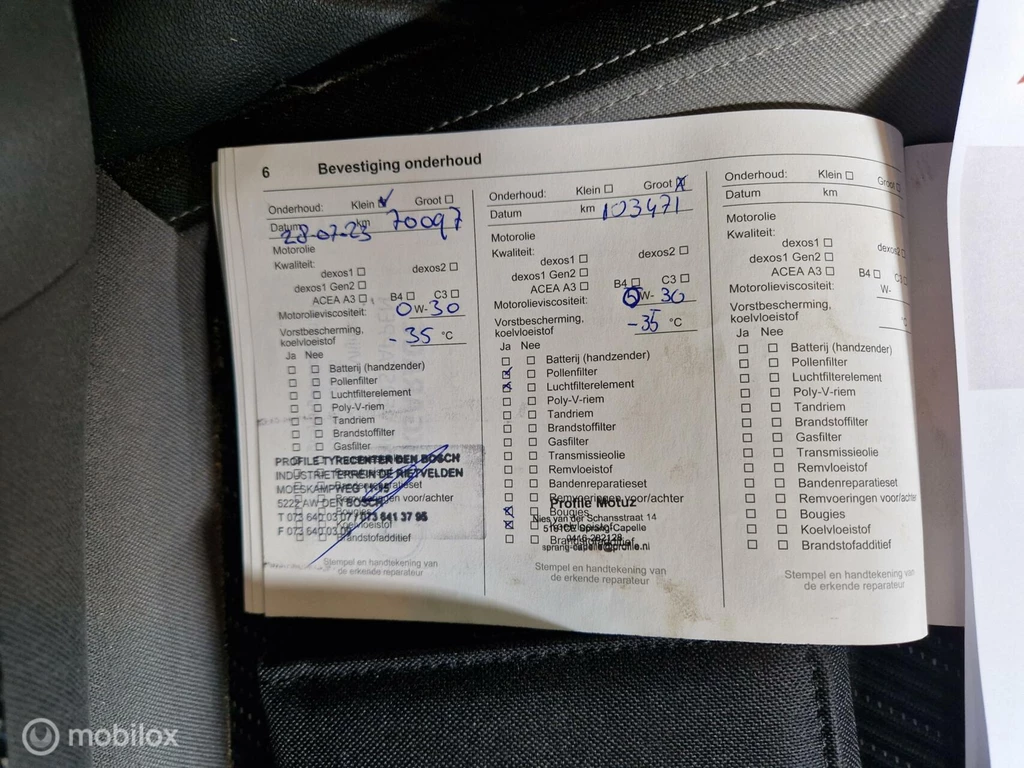 6 Bevestiging onderhoud
Onderhoud: Klein Groot
Datum km
28-07-23 70097
Motorolie
Kwaliteit:
dexos1 dexos2
dexos1 Gen2
ACEA A3 B4 C3
Motorolieviscositeit: 0 W- 30
Vorstbescherming,
koelvloeistof - 35 °C
Ja Nee
Batterij (handzender)
Pollenfilter
Luchtfilterelement
Poly-V-riem
Tandriem
Brandstoffilter
Gasfilter
PROFILE TYRECENTER DEN BOSCH
INDUSTRIETERREIN DE RIETVELDEN
MOESKAMPWEG 11-15
5222 AW DEN BOSCH
T 073 640 03 07 / 073 641 37 95
F 073 640 03 09
Koelvloeistof
Brandstofadditief
Stempel en handtekening van
de erkende reparateur
Onderhoud: Klein Groot
Datum km 103471
Motorolie
Kwaliteit:
dexos1 dexos2
dexos1 Gen2
ACEA A3 B4 C3
Motorolieviscositeit: 0 W- 30
Vorstbescherming,
koelvloeistof - 35 °C
Ja Nee
Batterij (handzender)
Pollenfilter
Luchtfilterelement
Poly-V-riem
Tandriem
Brandstoffilter
Gasfilter
Transmissieolie
Remvloeistof
Bandenreparatieset
Remvoeringen voor/achter
Profile Motuz
Bougies
Nies van der Schansstraat 14
5161CE Sprang-Capelle
0416-282128
sprang-capelle@profile.nl
Stempel en handtekening van
de erkende reparateur
Onderhoud: Klein Groot
Datum km
Motorolie
Kwaliteit:
dexos1 dexos2
dexos1 Gen2
ACEA A3 B4 C3
Motorolieviscositeit: W-
Vorstbescherming,
koelvloeistof
Ja Nee
Batterij (handzender)
Pollenfilter
Luchtfilterelement
Poly-V-riem
Tandriem
Brandstoffilter
Gasfilter
Transmissieolie
Remvloeistof
Bandenreparatieset
Remvoeringen voor/achter
Bougies
Koelvloeistof
Brandstofadditief
Stempel en handtekening van
de erkende reparateur
mobilox